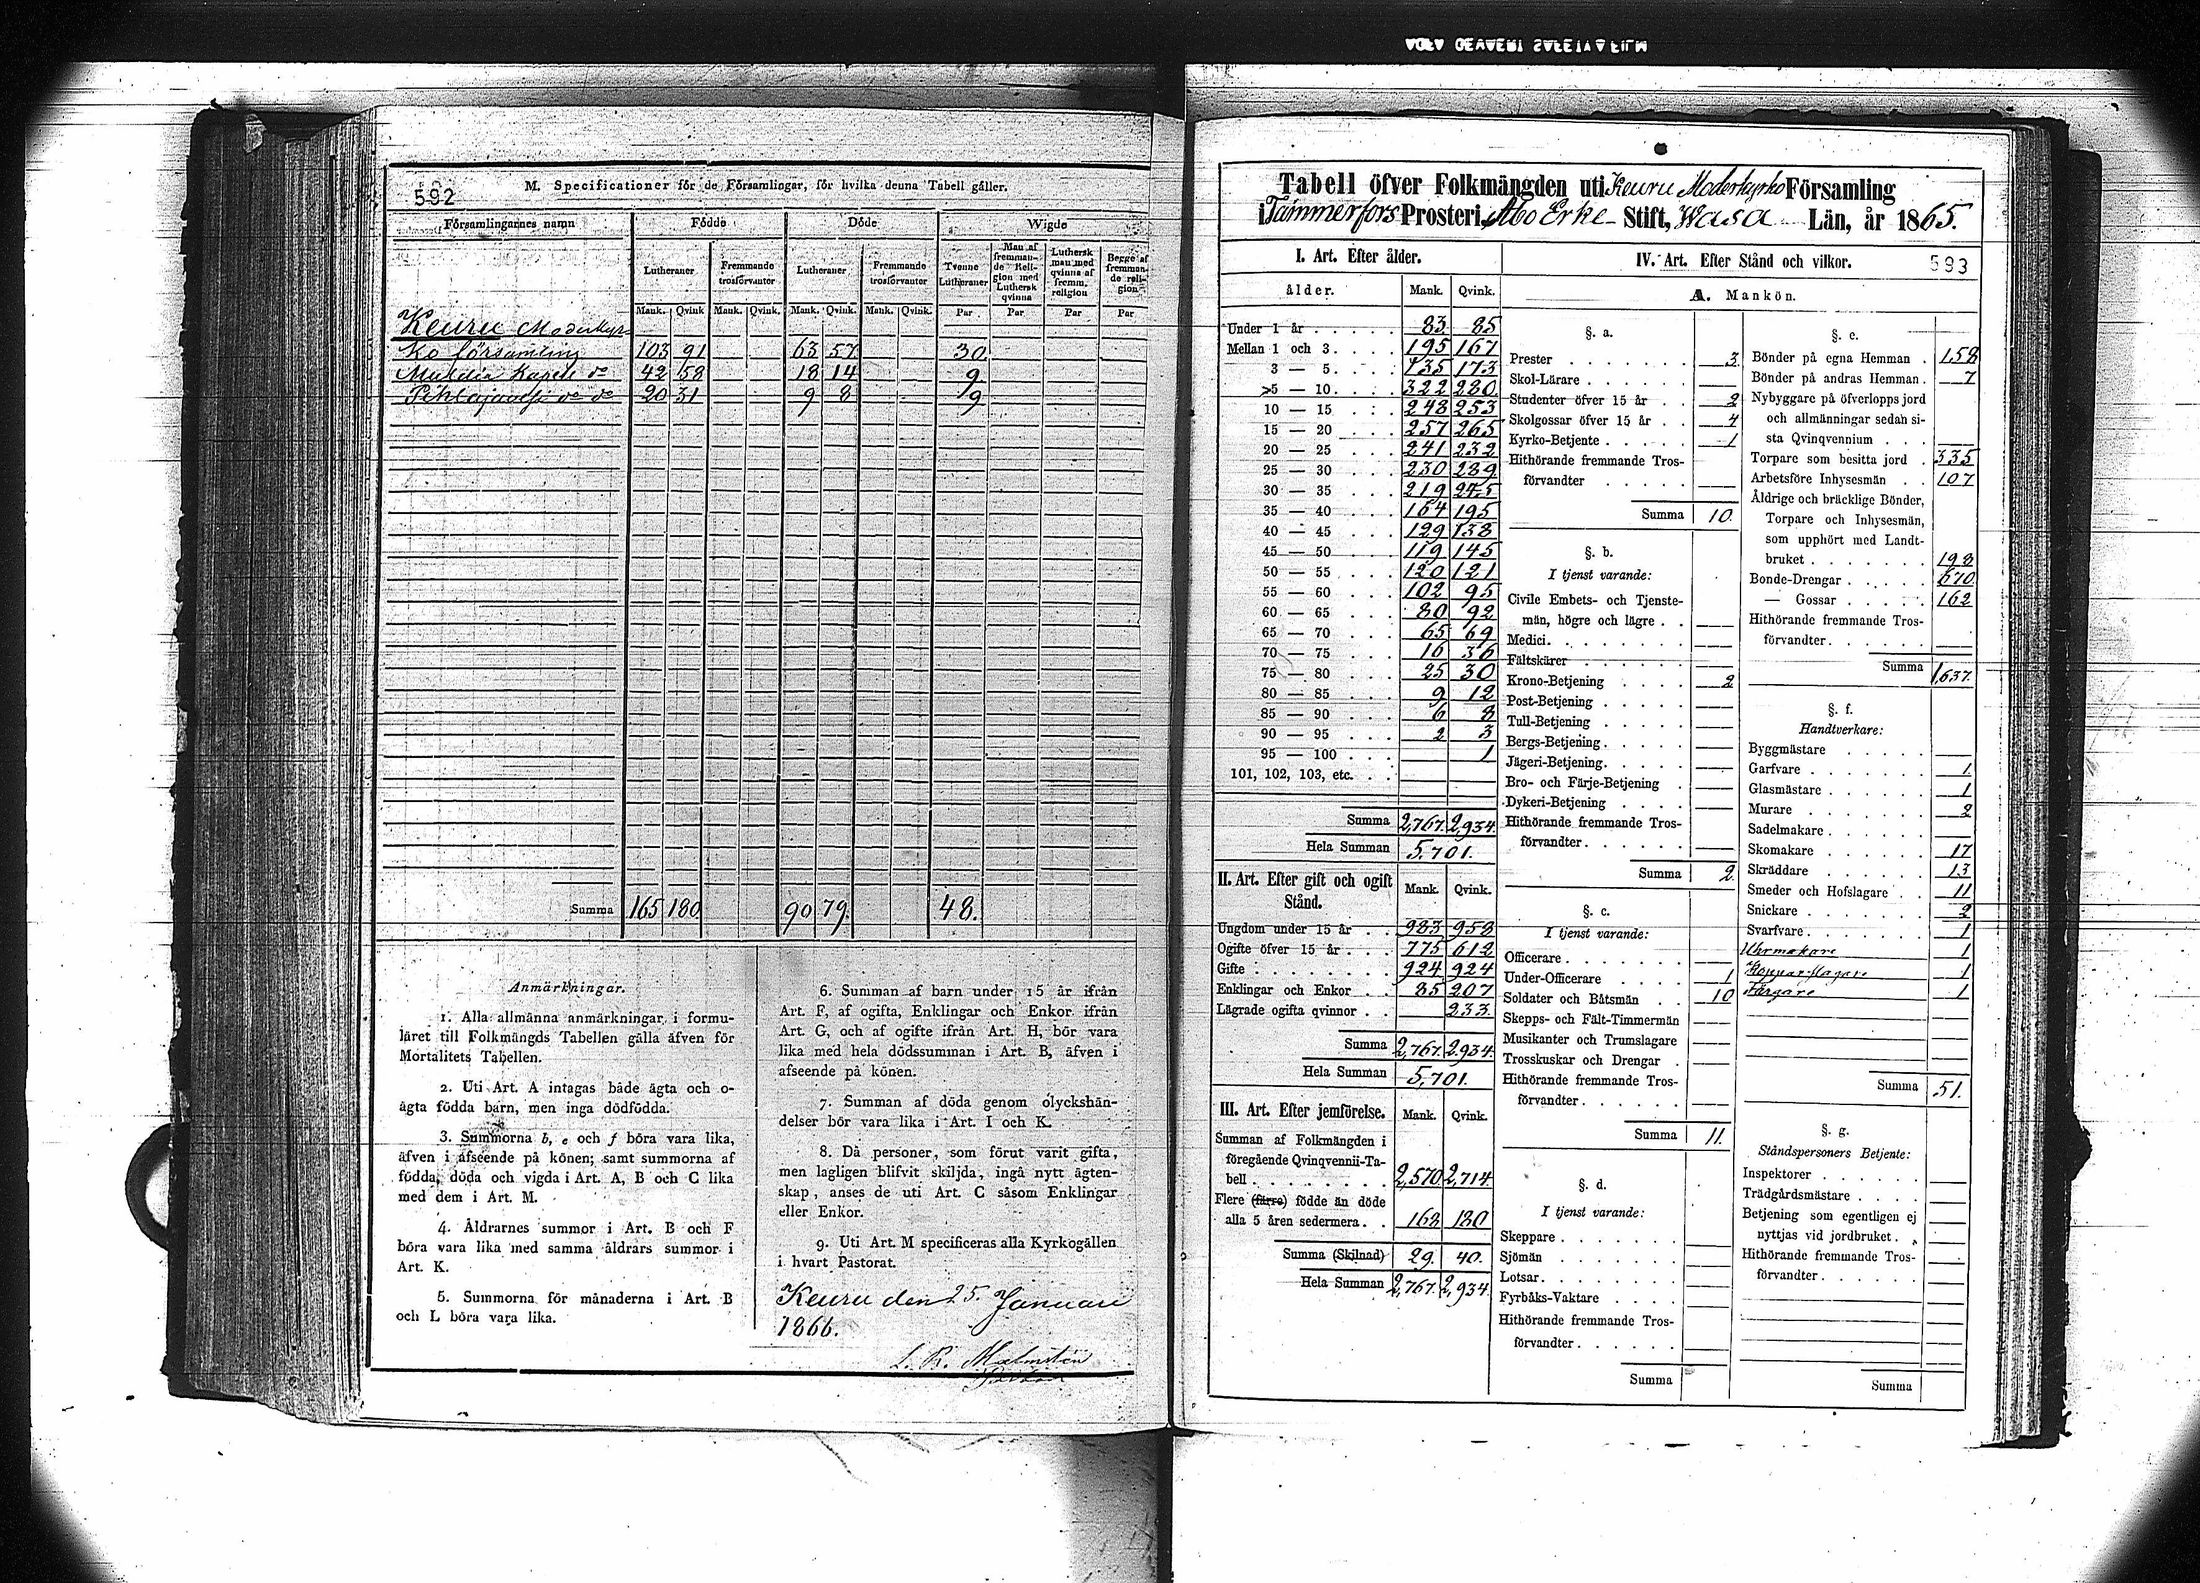 592
M. Specificationer för de Församlingar, för hvilka denna Tabell gäller.
Församlingarnes namn Födde Döde Wigde
Lutheraner Fremmande trosförvanter Lutheraner Fremmande trosförvanter Tvenne Lutheraner Man af fremmande Religion med Luthersk qvinna Luthersk man med qvinna af fremm. religion Begge af fremmande religion
Mank. Qvink Mank. Qvink. Mank. Qvink. Mank. Qvink. Par Par Par Par
Keuru Moderkyr
ko församling 103 91 63 57 30
Multia Kapell do 42 58 18 14 9
Pihlajavesi do do 20 31 9 8 9
Summa 165 180 90 79. 48.
Anmärkningar.
1. Alla allmänna anmärkningar i formu-
läret till Folkmängds Tabellen gälla äfven för
Mortalitets Tabellen.
2. Uti Art. A intagas både ägta och o-
ägta födda barn, men inga dödfödda.
3. Summorna b, e och f böra vara lika,
äfven i afseende på könen; samt summorna af
födda, döda och vigda i Art. A, B och C lika
med dem i Art. M.
4. Åldrarnes summor i Art. B och F
böra vara lika med samma åldrars summor i
Art. K.
5. Summorna för månaderna i Art. B
och L böra vara lika.
6. Summan af barn under 15 år ifrån
Art. F, af ogifta, Enklingar och Enkor ifrån
Art. G, och af ogifte ifrån Art. H, bör vara
lika med hela dödssumman i Art. B, äfven i
afseende på könen.
7. Summan af döda genom olyckshän-
delser bör vara lika i Art. I och K.
8. Då personer, som förut varit gifta,
men lagligen blifvit skiljda, ingå nytt ägten-
skap, anses de uti Art. C såsom Enklingar
eller Enkor.
9. Uti Art. M specificeras alla Kyrkogällen
i hvart Pastorat.
Keuru den 25. Januari
1866.
L. R. Malmstén
Tabell öfver Folkmängden uti Keuru Moderkyrko Församling
i Tammerfors Prosteri, Åbo Erke- Stift, Wasa Län, år 1865.
I. Art. Efter ålder.
ålder. Mank. Qvink.
Under 1 år 83 85
Mellan 1 och 3 195 167
3 — 5 135 173
5 — 10 322 280
10 — 15 248 253
15 — 20 257 265
20 — 25 241 232
25 — 30 230 289
30 — 35 219 245
35 — 40 164 195
40 — 45 129 138
45 — 50 119 145
50 — 55 120 121
55 — 60 102 95
60 — 65 80 92
65 — 70 65 69
70 — 75 16 36
75 — 80 25 30
80 — 85 9 12
85 — 90 6 8
90 — 95 2 3
95 — 100 1
101, 102, 103, etc.
Summa 2,767. 2,934.
Hela Summan 5,701.
II. Art. Efter gift och ogift Stånd. Mank. Qvink.
Ungdom under 15 år 983 958
Ogifte öfver 15 år 775 612
Gifte 924 924
Enklingar och Enkor 85 207
Lägrade ogifta qvinnor 233.
Summa 2,767. 2,934.
Hela Summan 5,701.
III. Art. Efter jemförelse. Mank. Qvink.
Summan af Folkmängden i
föregående Qvinqvennii-Ta-
bell 2,570 2,714
Flere (färre) födde än döde
alla 5 åren sedermera 168 180
Summa (Skilnad) 29. 40.
Hela Summan 2,767. 2,934
IV. Art. Efter Stånd och vilkor. 593
A. Mankön.
§. a.
Prester 3
Skol-Lärare
Studenter öfver 15 år 2
Skolgossar öfver 15 år 4
Kyrko-Betjente 1
Hithörande fremmande Tros-
förvandter
Summa 10.
§. b.
I tjenst varande:
Civile Embets- och Tjenste-
män, högre och lägre
Medici
Fältskärer
Krono-Betjening 2
Post-Betjening
Tull-Betjening
Bergs-Betjening
Jägeri-Betjening
Bro- och Färje-Betjening
Dykeri-Betjening
Hithörande fremmande Tros-
förvandter
Summa 2.
§. c.
I tjenst varande:
Officerare
Under-Officerare 1
Soldater och Båtsmän 10
Skepps- och Fält-Timmermän
Musikanter och Trumslagare
Trosskuskar och Drengar
Hithörande fremmande Tros-
förvandter
Summa 11.
§. d.
I tjenst varande:
Skeppare
Sjömän
Lotsar
Fyrbåks-Vaktare
Hithörande fremmande Tros-
förvandter
Summa
§. e.
Bönder på egna Hemman 158
Bönder på andras Hemman 7
Nybyggare på öfverlopps jord
och allmänningar sedan si-
sta Qvinqvennium
Torpare som besitta jord 335
Arbetsföre Inhysesmän 107
Åldrige och bräcklige Bönder,
Torpare och Inhysesmän,
som upphört med Landt-
bruket 198
Bonde-Drengar 670
— Gossar 162
Hithörande fremmande Tros-
förvandter
Summa 1,637.
§. f.
Handtverkare:
Byggmästare
Garfvare 1
Glasmästare 1
Murare 2
Sadelmakare
Skomakare 17
Skräddare 13
Smeder och Hofslagare 11
Snickare 2
Svarfvare 1
Uhrmakare 1
Kopparslagare 1
Färgare 1
Summa 51.
§. g.
Ståndspersoners Betjente:
Inspektorer
Trädgårdsmästare
Betjening som egentligen ej
nyttjas vid jordbruket
Hithörande fremmande Tros-
förvandter
Summa